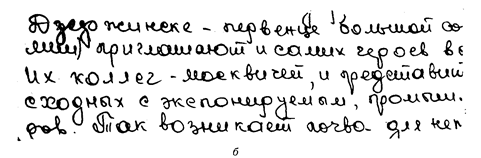 Дзержинске - первенце большой со
мии) приглашают и самих героев вс
Их коллег - москвичей, и представит
сходных с экспонируемым, промыш.
ров. Так возникает почва для неп
б